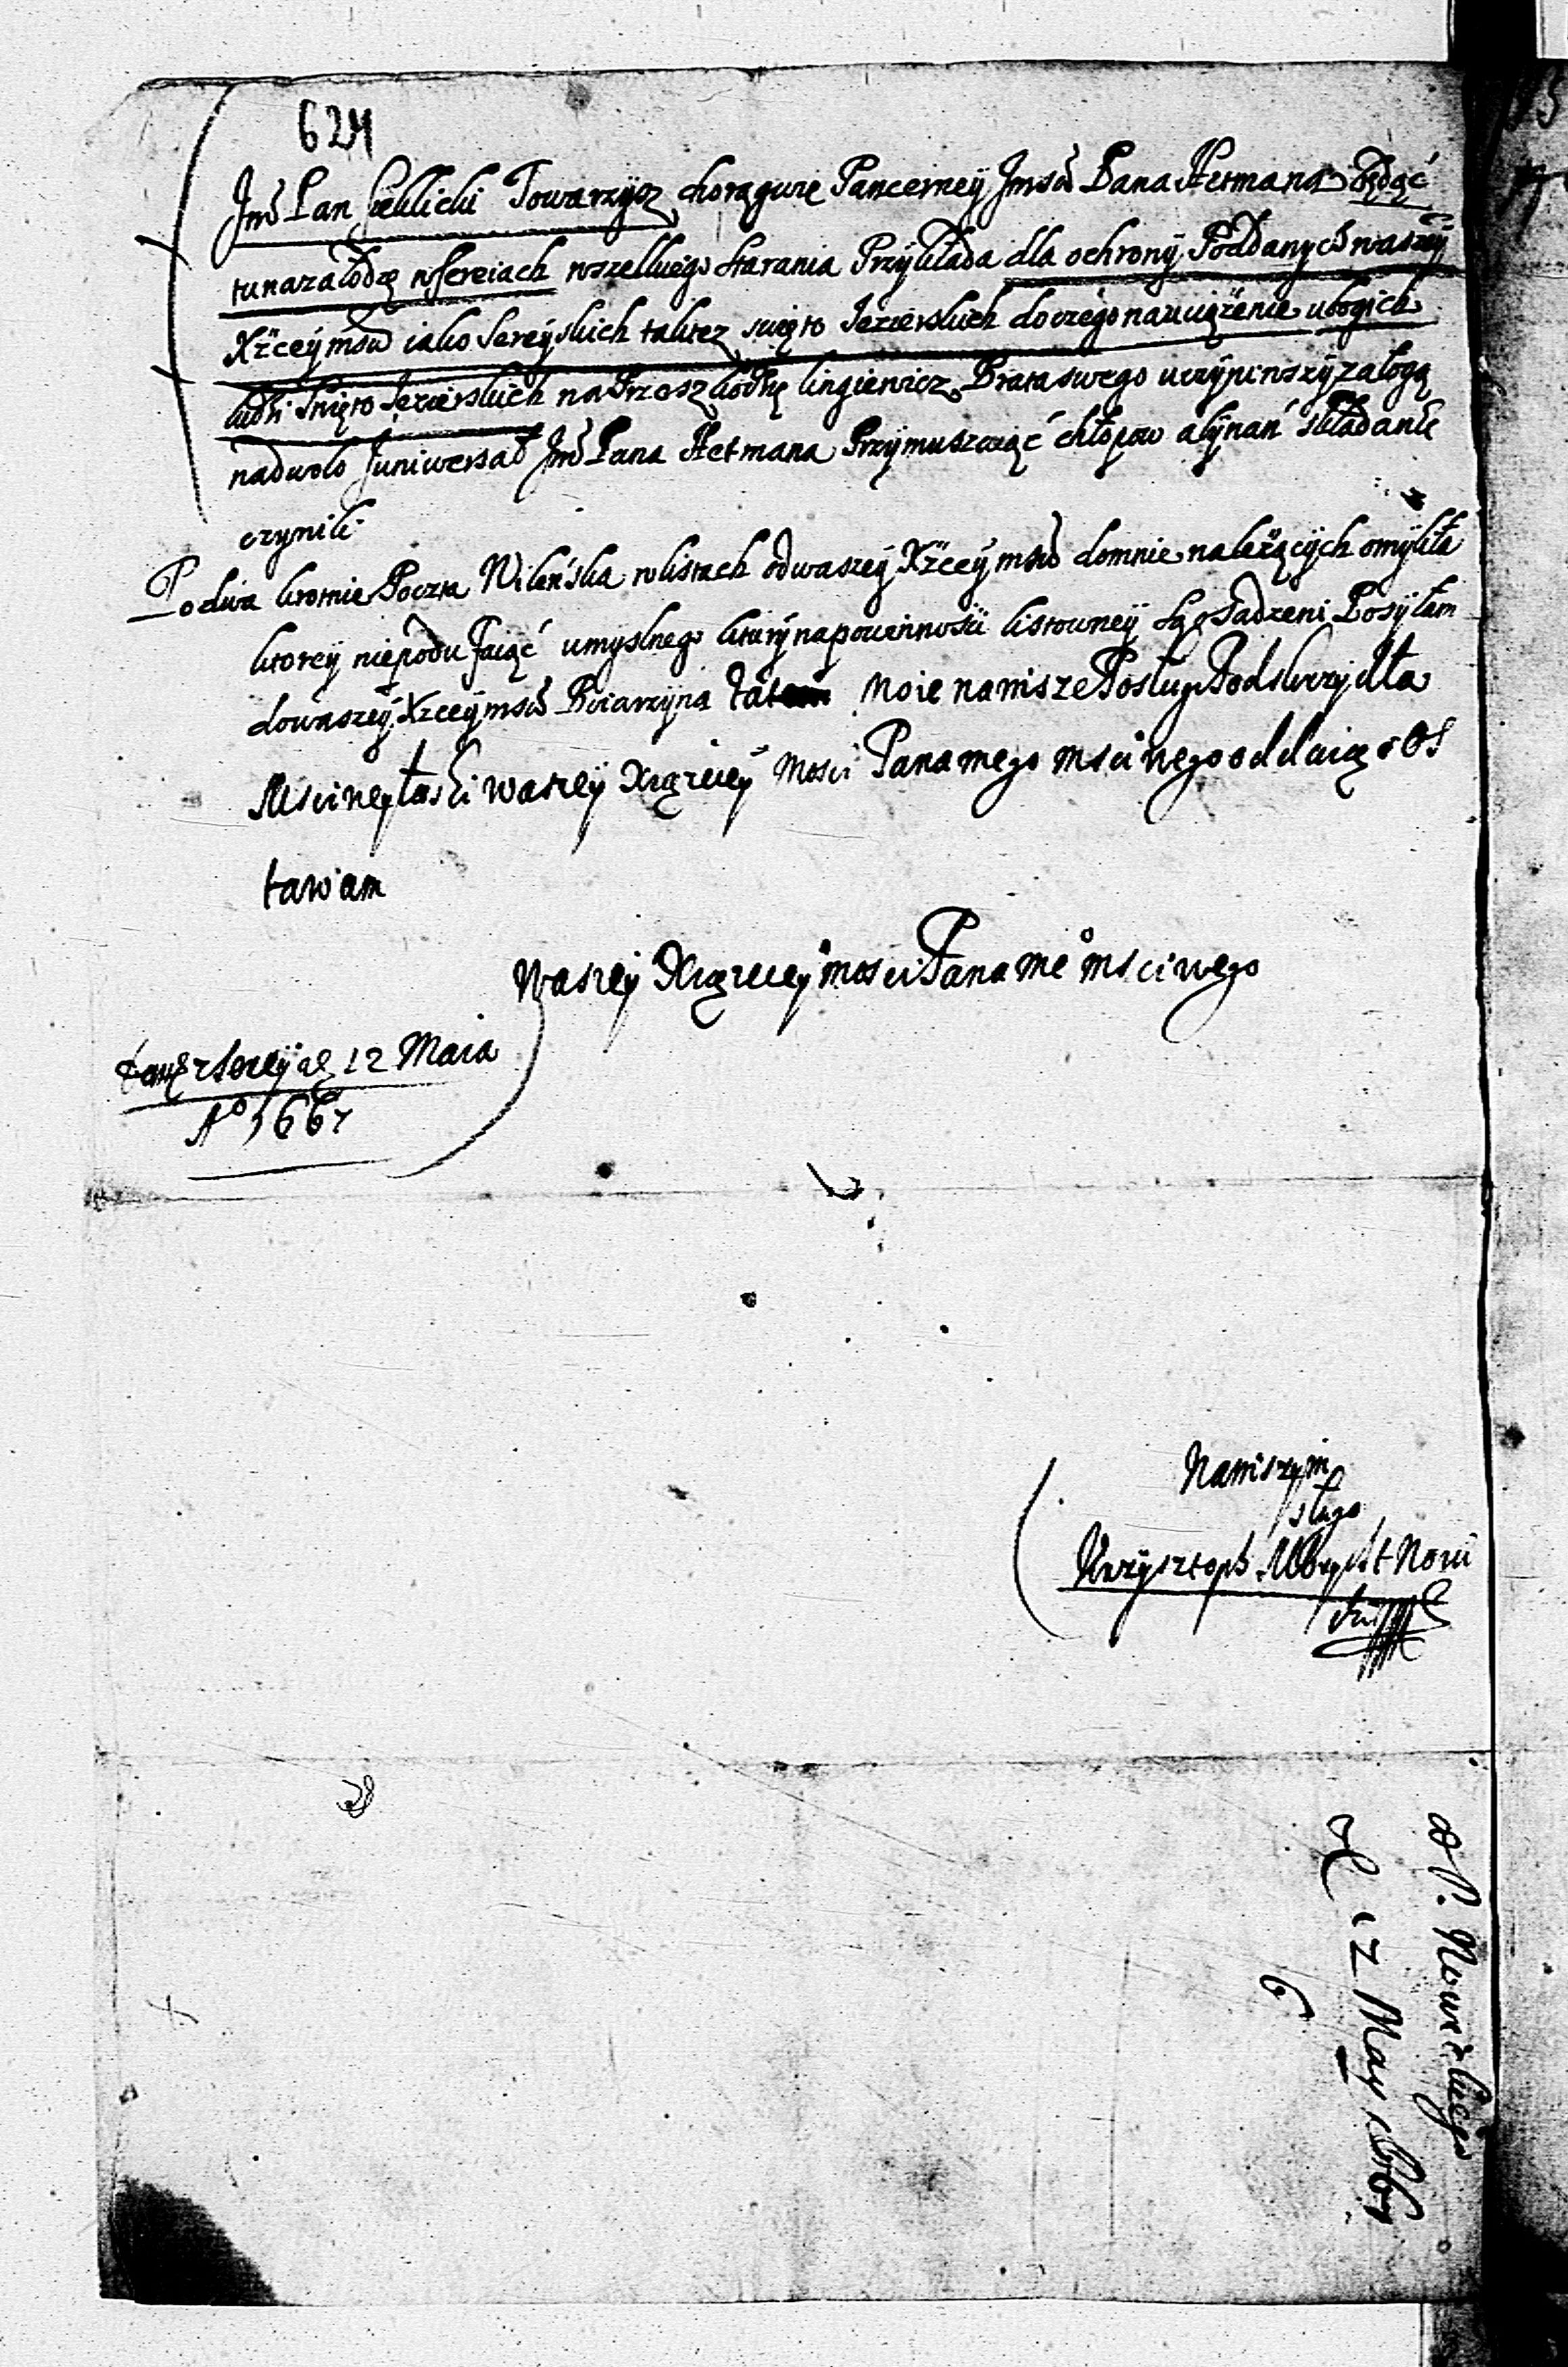 624
Jmś Pan Towarzysz chorągwie Pancerney Jmści Pana Hetmana będąć
tu na załodze w Sereiach wszelkiego starania Przykłada dla ochrony Poddanych waszey
Xżcey mści iako Sereyskich takież swięto Jezierskich do czego na uciążenie ubogich
ludzi Święto Jezierskich na Przeszkodę lingiewicz Brata swego uczyniwszy załogą
nad wolo Juniwersał Jmś Pana Hetmana Przymuszaiąć chłopow aby nań składanie
czynili
Po dwa krotnie Poczta Wileńska w listach od waszey Xżcey mści do mnie należących omyliła
ktorey nie podufaiąć umyslnego ktory na powinności listowney są osadzeni Posyłam
do waszey Xżcey mści Boiarzyna zatem Moie nanisze Posługi Pod skrzydła
Mściwey łaski waszey Xiążęcey Mości Pana mego mściwego oddaię i Os
tawam
Waszey Xiążęcey mości Pana me° mściwego
z Serey ae 12 Maia
A° 1667
Naniszym
sługo
Krzysztoph Albrycht Nowi
cki
od P. Nowickiego
de 12 May 1667
6